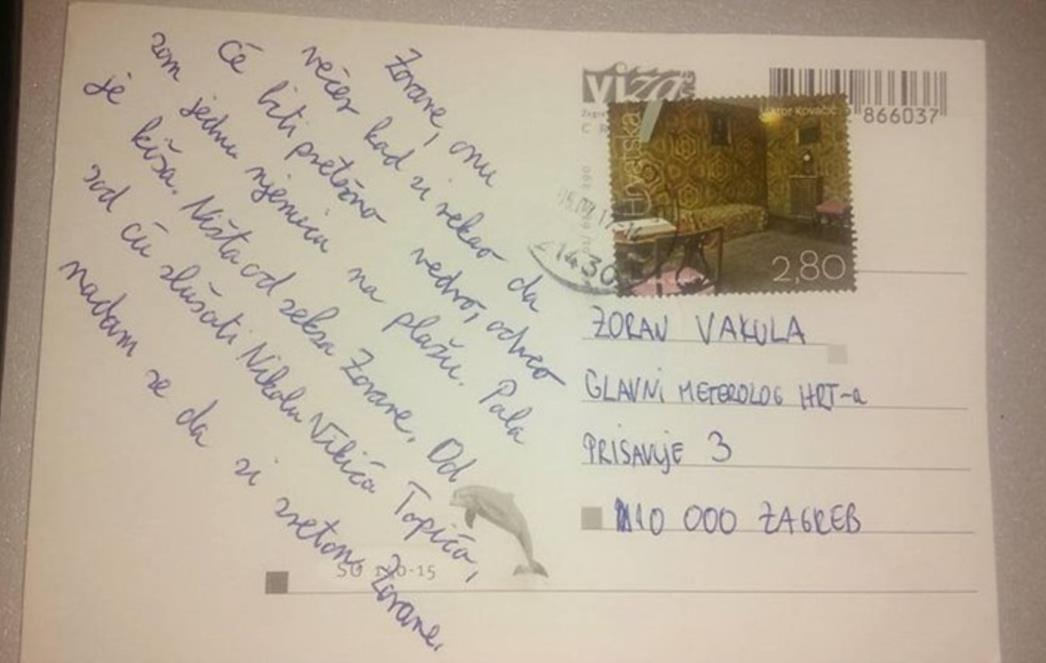 Zorane, onu
večer kad si rekao da
će biti pretežno vedro, odveo
sam jednu njemicu na plažu. Pala
je kiša. Ništa od seksa Zorane. Od
sad ću slušati Nikolu Vikića Topića,
nadam se da si sretan, Zorane.
viza
866037
Viktor Kovačić
Hrvatska
2,80
ZORAN VAKULA
GLAVNI METEROLOG HRT-a
PRISAVLJE 3
10 000 ZAGREB